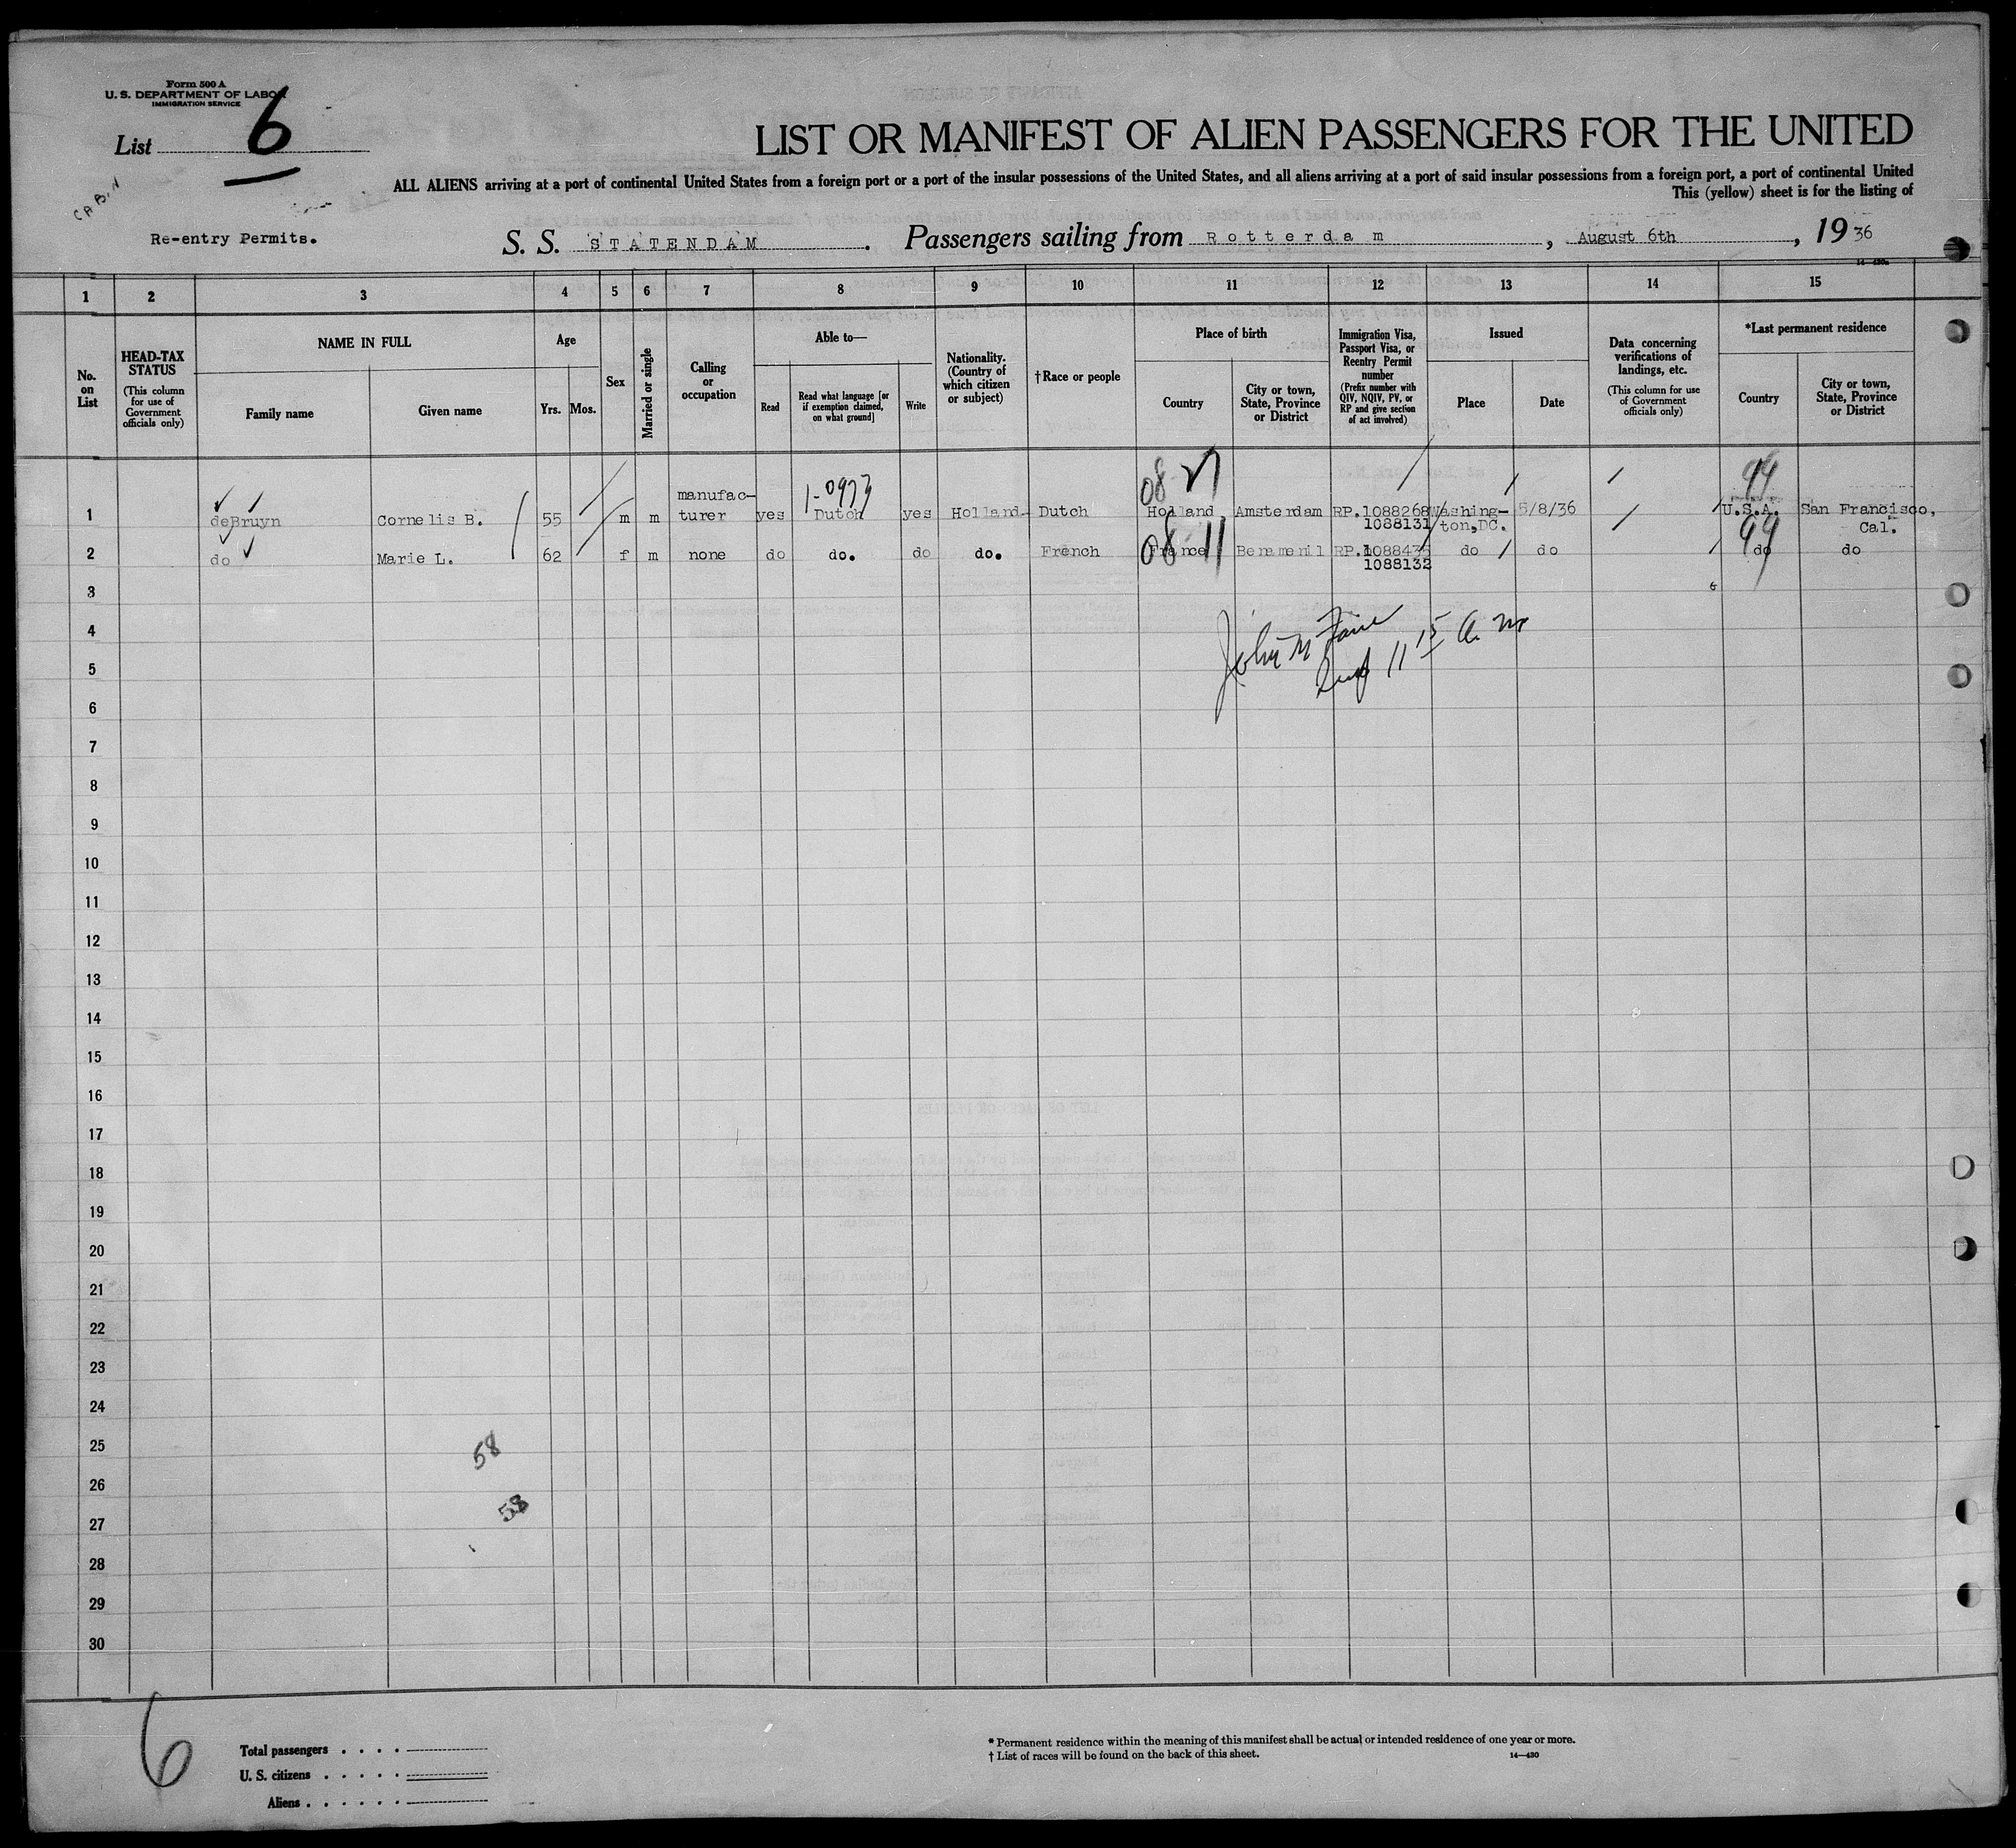 Form 500 A
U. S. DEPARTMENT OF LABOR
IMMIGRATION SERVICE
List 6
CABIN
LIST OR MANIFEST OF ALIEN PASSENGERS FOR THE UNITED
ALL ALIENS arriving at a port of continental United States from a foreign port or a port of the insular possessions of the United States, and all aliens arriving at a port of said insular possessions from a foreign port, a port of continental United
This (yellow) sheet is for the listing of
Re-entry Permits.
S. S. STATENDAM. Passengers sailing from Rotterdam, August 6th, 1936
14—430a
1 2 3 4 5 6 7 8 9 10 11 12 13 14 15
No. on List
HEAD-TAX STATUS
(This column for use of Government officials only)
NAME IN FULL
Family name
Given name
Age
Yrs. Mos.
Sex
Married or single
Calling or occupation
Able to—
Read
Read what language [or if exemption claimed, on what ground]
Write
Nationality. (Country of which citizen or subject)
†Race or people
Place of birth
Country
City or town, State, Province or District
Immigration Visa, Passport Visa, or Reentry Permit number
(Prefix number with QIV, NQIV, PV, or RP and give section of act involved)
Issued
Place
Date
Data concerning verifications of landings, etc.
(This column for use of Government officials only)
*Last permanent residence
Country
City or town, State, Province or District
1 deBruyn Cornelis B. 55 m m manufac-turer yes Dutch yes Holland Dutch Holland Amsterdam RP.1088268 1088131 Washing-ton,DC. 5/8/36 U.S.A. San Francisco, Cal.
1-0973
08
99
2 do Marie L. 62 f m none do do. do do. French France RP. 1088132 do do do do
08 11
99
3
4
John M
11 15 a. m
5
6
7
8
9
10
11
12
13
14
15
16
17
18
19
20
21
22
23
24
25
58
26
58
27
28
29
30
6
Total passengers . . . .
U. S. citizens . . . . .
Aliens . . . . . .
* Permanent residence within the meaning of this manifest shall be actual or intended residence of one year or more.
† List of races will be found on the back of this sheet.
14—430